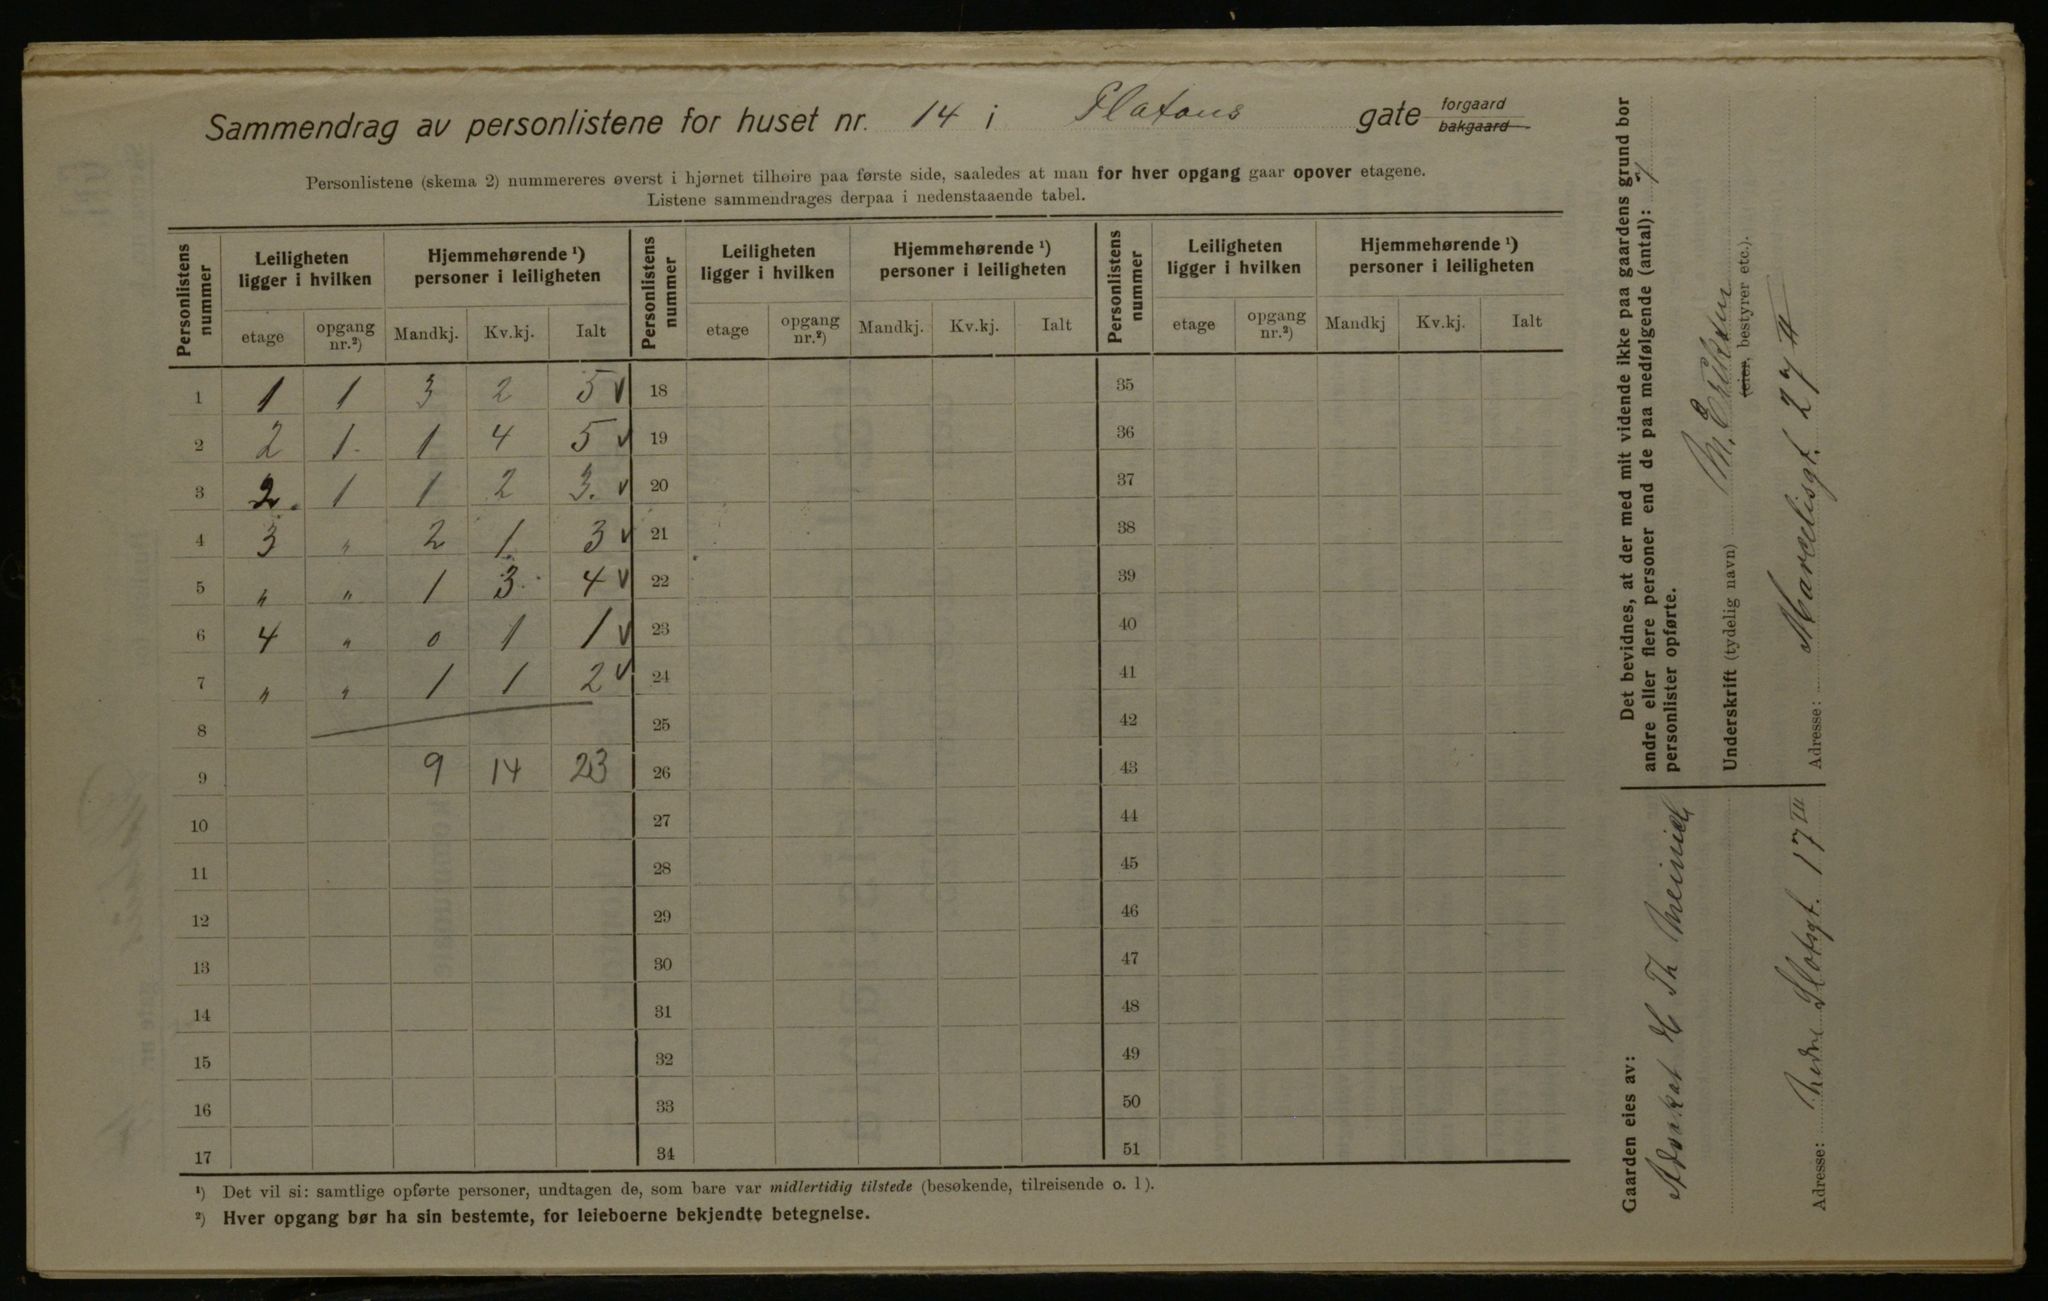 Sammendrag av personlistene for huset nr. 14 i Platous gate forgaard bakgaard
Personlistene (skema 2) nummereres øverst i hjørnet tilhøire paa første side, saaledes at man for hver opgang gaar opover etagene.
Listene sammendrages derpaa i nedenstaaende tabel.
Personlistens nummer | Leiligheten ligger i hvilken | Hjemmehørende ¹) personer i leiligheten | Personlistens nummer | Leiligheten ligger i hvilken | Hjemmehørende ¹) personer i leiligheten | Personlistens nummer | Leiligheten ligger i hvilken | Hjemmehørende ¹) personer i leiligheten
etage | opgang nr.²) | Mandkj. | Kv.kj. | Ialt | etage | opgang nr.²) | Mandkj. | Kv.kj. | Ialt | etage | opgang nr.²) | Mandkj | Kv.kj. | Ialt
1 | 1 | 1 | 3 | 2 | 5 ✓ | 18 | 35
2 | 2 | 1 | 1 | 4 | 5 ✓ | 19 | 36
3 | 2. | 1 | 1 | 2 | 3. ✓ | 20 | 37
4 | 3 | " | 2 | 1 | 3 ✓ | 21 | 38
5 | " | " | 1 | 3 | 4 ✓ | 22 | 39
6 | 4 | " | 0 | 1 | 1 ✓ | 23 | 40
7 | " | " | 1 | 1 | 2 ✓ | 24 | 41
8 | 25 | 42
9 | 9 | 14 | 23 | 26 | 43
10 | 27 | 44
11 | 28 | 45
12 | 29 | 46
13 | 30 | 47
14 | 31 | 48
15 | 32 | 49
16 | 33 | 50
17 | 34 | 51
¹) Det vil si: samtlige opførte personer, undtagen de, som bare var midlertidig tilstede (besøkende, tilreisende o. l).
²) Hver opgang bør ha sin bestemte, for leieboerne bekjendte betegnelse.
Det bevidnes, at der med mit vidende ikke paa gaardens grund bor
andre eller flere personer end de paa medfølgende (antal): 7
personlister opførte.
Underskrift (tydelig navn) M.
(eier, bestyrer etc.).
Adresse: Marcelisgt. 27 II
Gaarden eies av:
Advokat H Th
Adresse: Nedre Slotsgt. 17 III